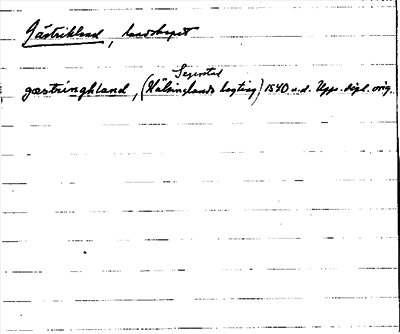 Gästrikland, landskapet
Segersta
gæstringhland, (Hälsinglands lagting) 1540 u.d. Upps. dipl. orig.